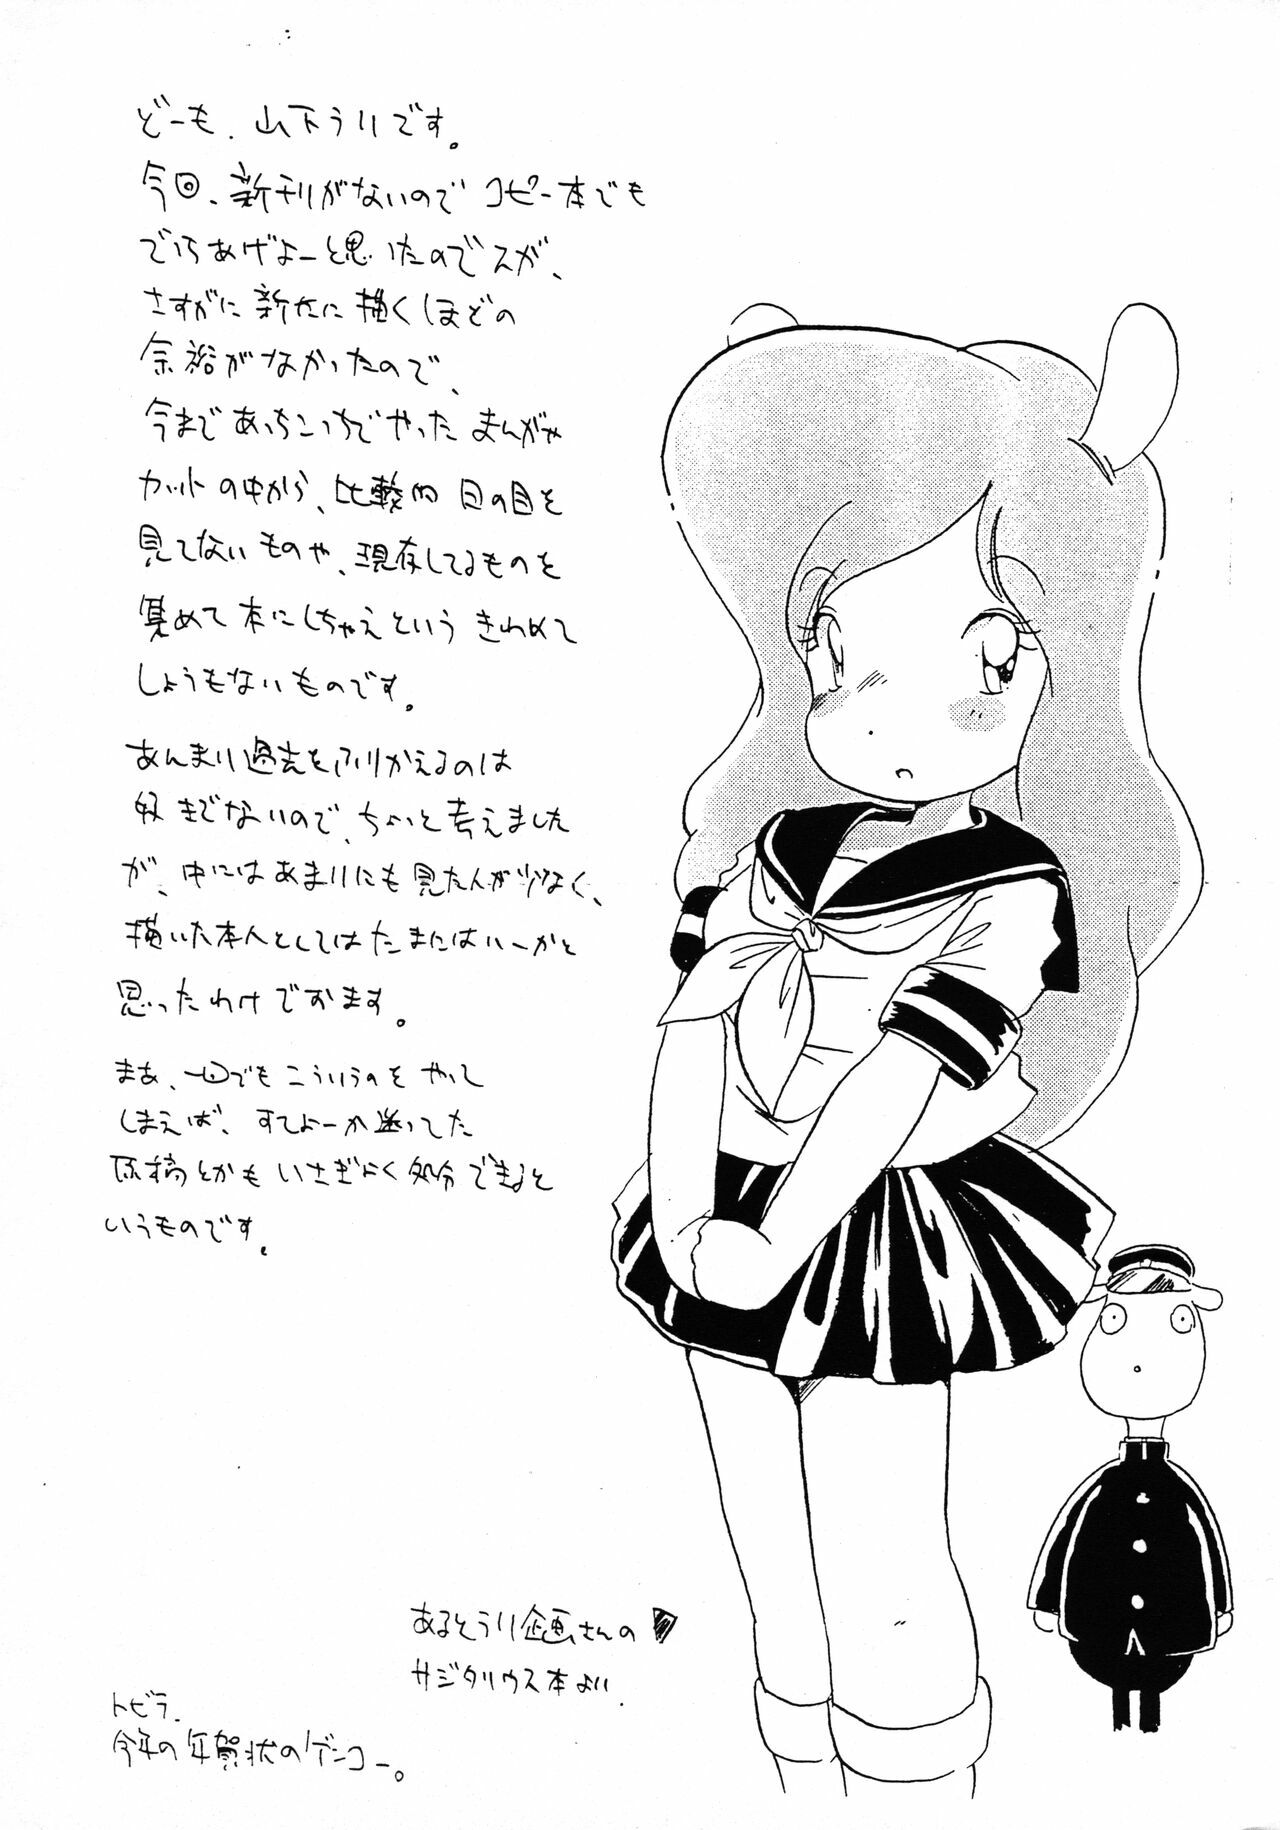 どーも、山下うりです。
今回、新刊がないのでコピー本でも
でっちあげよーと思いったのでスが、
さすがに新たに描くほどの
余裕がなかったので、
今まであっちこっちでやったまんがや
カットの中から、比較的日の目を
見てないものや、現存してるものを
集めて本にしちゃえというきわめて
しょうもないものです。
あんまり過去をふりかえるのは
好きでないので、ちょいと考えました
が、中にはあまりにも見た人が少なく、
描いた本人としてはたまにはいーかと
思ったわけでおます。
まあ、一回でもこういうのをやって
しまえば、すてよーか迷ってた
原稿とかもいさぎよく処分できると
いうものです。
あるとうり企画さんの
サジタリウス本より。
トビラ.
今年の年賀状のゲンコー。